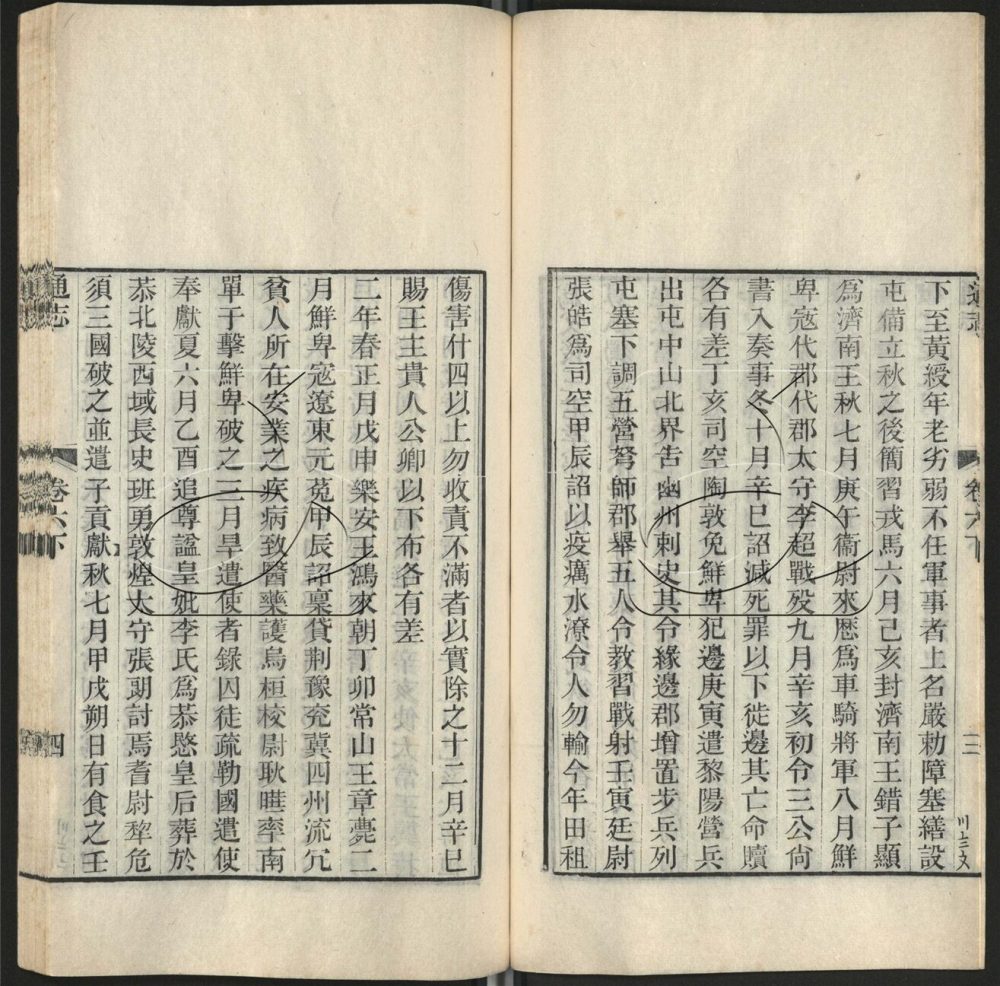 下至黃綬年老劣弱不任軍事者上名嚴勅障塞繕設
屯備立秋之後簡習戎馬六月己亥封濟南王錯子顯
爲濟南王秋七月庚午衞尉來歷爲車騎將軍八月鮮
卑寇代郡代郡太守李超戰歿九月辛亥初令三公尙
書入奏事冬十月辛巳詔減死罪以下徙邊其亡命贖
各有差丁亥司空陶敦免鮮卑犯邊庚寅遣黎陽營兵
出屯中山北界告幽州刺史其令緣邊郡增置步兵列
屯塞下調五營弩師郡舉五人令教習戰射壬寅廷尉
張皓爲司空甲辰詔以疫癘水潦令人勿輸今年田租
通志
卷六下
三
傷害什四以上勿收責不滿者以實除之十二月辛巳
賜王主貴人公卿以下布各有差
二年春正月戊申樂安王鴻來朝丁卯常山王章薨二
月鮮卑寇遼東元菟甲辰詔稟貸荆豫兗冀四州流冗
貧人所在安業之疾病致醫藥護烏桓校尉耿曄率南
單于擊鮮卑破之三月旱遣使者錄囚徒疏勒國遣使
奉獻夏六月乙酉追尊諡皇妣李氏爲恭愍皇后葬於
恭北陵西域長史班勇敦煌太守張朗討焉耆尉犂危
須三國破之並遣子貢獻秋七月甲戌朔日有食之壬
通志
卷六下
四